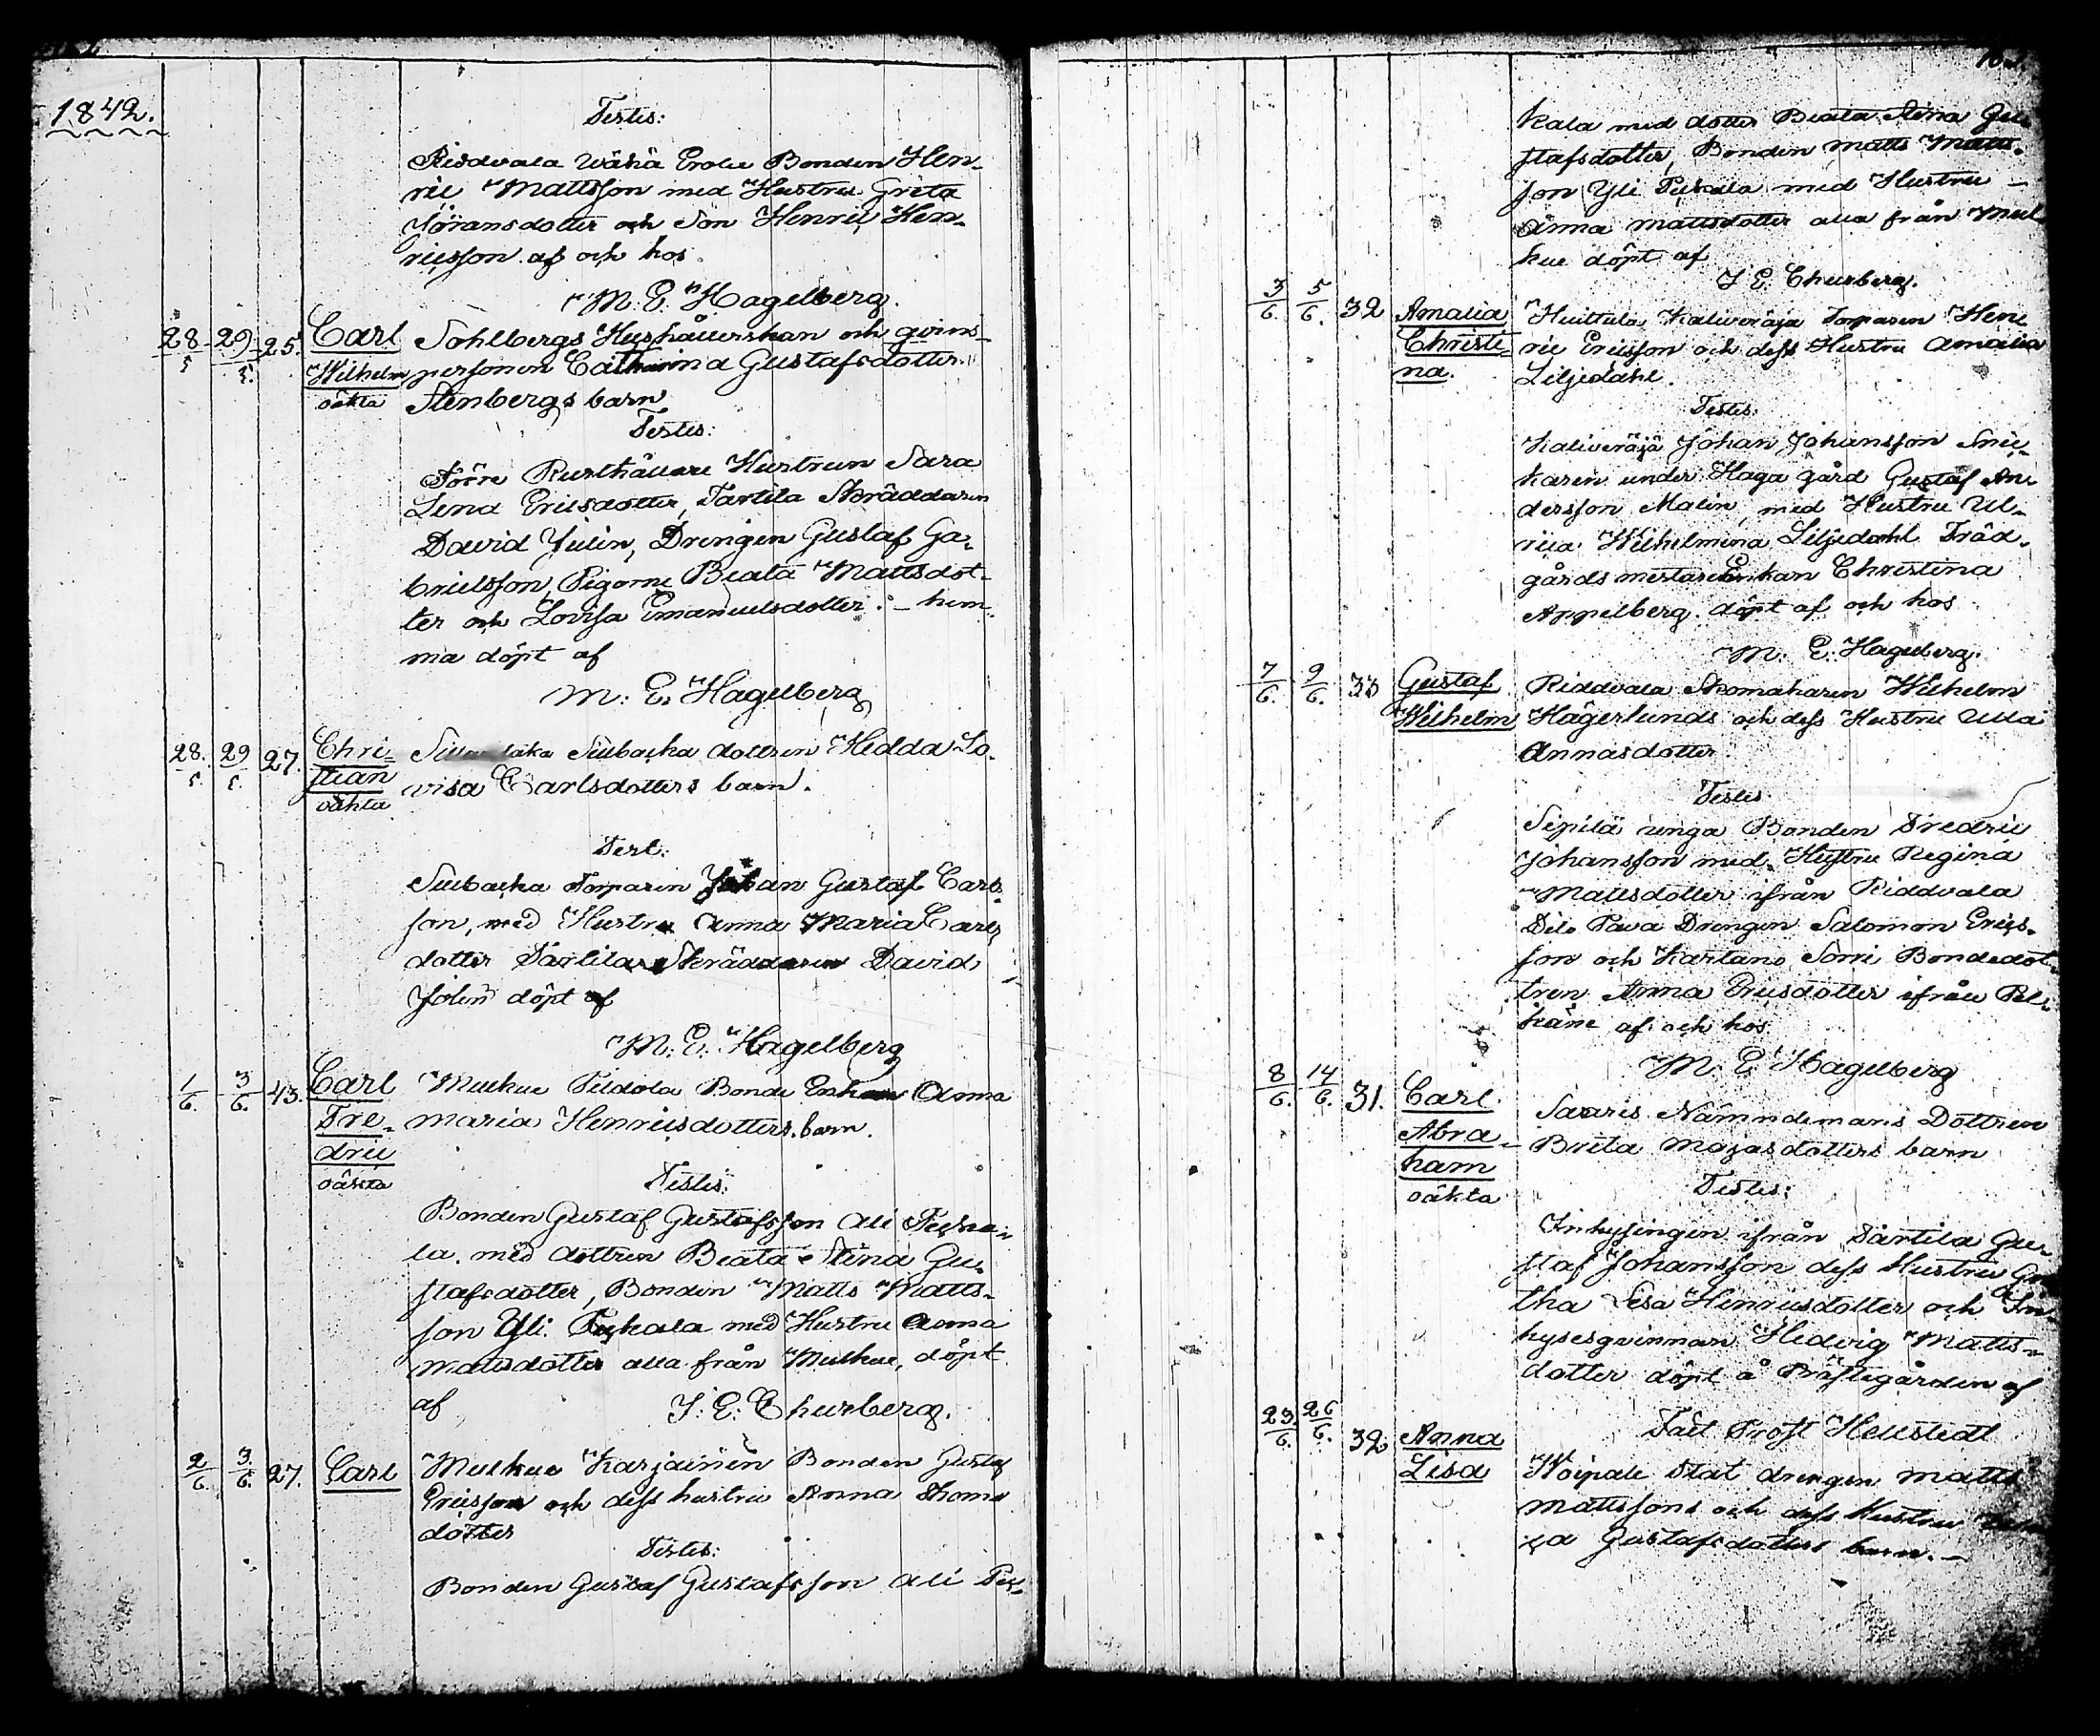 1842.
Testes:
Riddvala Wähä Erola Bonden Hen-
ric Mattsson med Hustru Greta
Göransdotter och Son Henric Hen-
ricsson af och hos
M: E: Hagelberg.
28/5 29/5. 25. Carl Sohlbergs Hushållerskan och qvins-
Wilhelm personen Catharina Gustafsdotter
oäkta Stenbergs barn
Testes:
Sörri Rusthållare Hustrun Sara
Lena Ericsdotter, Tartila Skräddaren
David Julin, Drengen Gustaf Ga-
brielsson, Pigorne Beata Mattsdot-
ter och Lovisa Emanuelsdotter: - hem-
ma döpt af
M: E. Hagelberg
28./5. 29/5. 27. Chri- Suubacka dottren Hedda Lo-
stian visa Carlsdotters barn.
oäkta
Test:
Suubacka Torparen Johan Gustaf Carls-
son, med Hustru Anna Maria Carls
dotter Tartila Skräddaren David
Julin döpt af
M: E: Hagelberg
1/6. 3/6. 43. Carl Mulkue Bonde Enkan Anna
Fre- maria Henricsdotters barn.
dric
oäkta Testes:
Bonden Gustaf Gustafsson Ali
la. med dottren Beata Stina Gu-
stafsdotter, Bonden Matts Matts-
son Yli. med Hustru Anna
mattsdotter alla från Mulkue, döpt
af J: E: Churberg.
2/6. 3/6. 27. Carl Mulkue Karjainen Bonden Gustaf
Ericsson och dess hustru Anna Thoms
dotter
Testes:
Bonden Gustaf Gustafsson Ali
kala med dotter Beata Stina Gu-
stafsdotter, Bonden Matts Matts-
son Yli med Hustru -
Anna mattsdotter alla från Mul
kue döpt af
J E: Churberg.
3/6. 5/6. 32 Amalia Huittula Kaliveräja Torparen Hen
Christi- ric Ericsson och dess Hustru Amalia
na. Liljedahl.
Testes:
Kaliveräjä Johan Johansson Snic-
karen under Haga gård Gustaf An-
dersson Malin, med Hustru Ul-
rica Wilhelmina Liljedahl Träd-
gårds mestare Enkan Christina
Appelberg. döpt af och hos
M: E. Hagelberg.
7/6. 9/6. 33 Gustaf Riddvala Skomakaren Wilhelm
Wilhelm Hägerlunds och dess Hustru Ulla
Annasdotter
Testes
Sipilä unga Bonden Fredric
Johansson med Hustru Regina
Mattsdotter ifrån Riddvala
Dito Pava Drengen Salomon Erics-
son och Kartano Sorri Bondedot-
tren Anna Ericsdotter ifrån Pel-
käne af och hos
M. E. Hagelberg
8/6. 14/6. 31. Carl Saaris Nämndemans Dottren
Abra- Brita Majasdotters barn
ham
oäkta Testes:
Inhysingen ifrån Tartila Gu-
staf Johansson dess Hustru
tha Lisa Henricsdotter och In-
hysesqvinnan Hedvig Matts-
dotter döpt å Prästegården af
Prost Hellstedt
23./6. 26/6. 32 Anna Woipale Stat drengen Matts
Lisa Mattssons och dess Hustru
ca Gustafsdotters barn. -